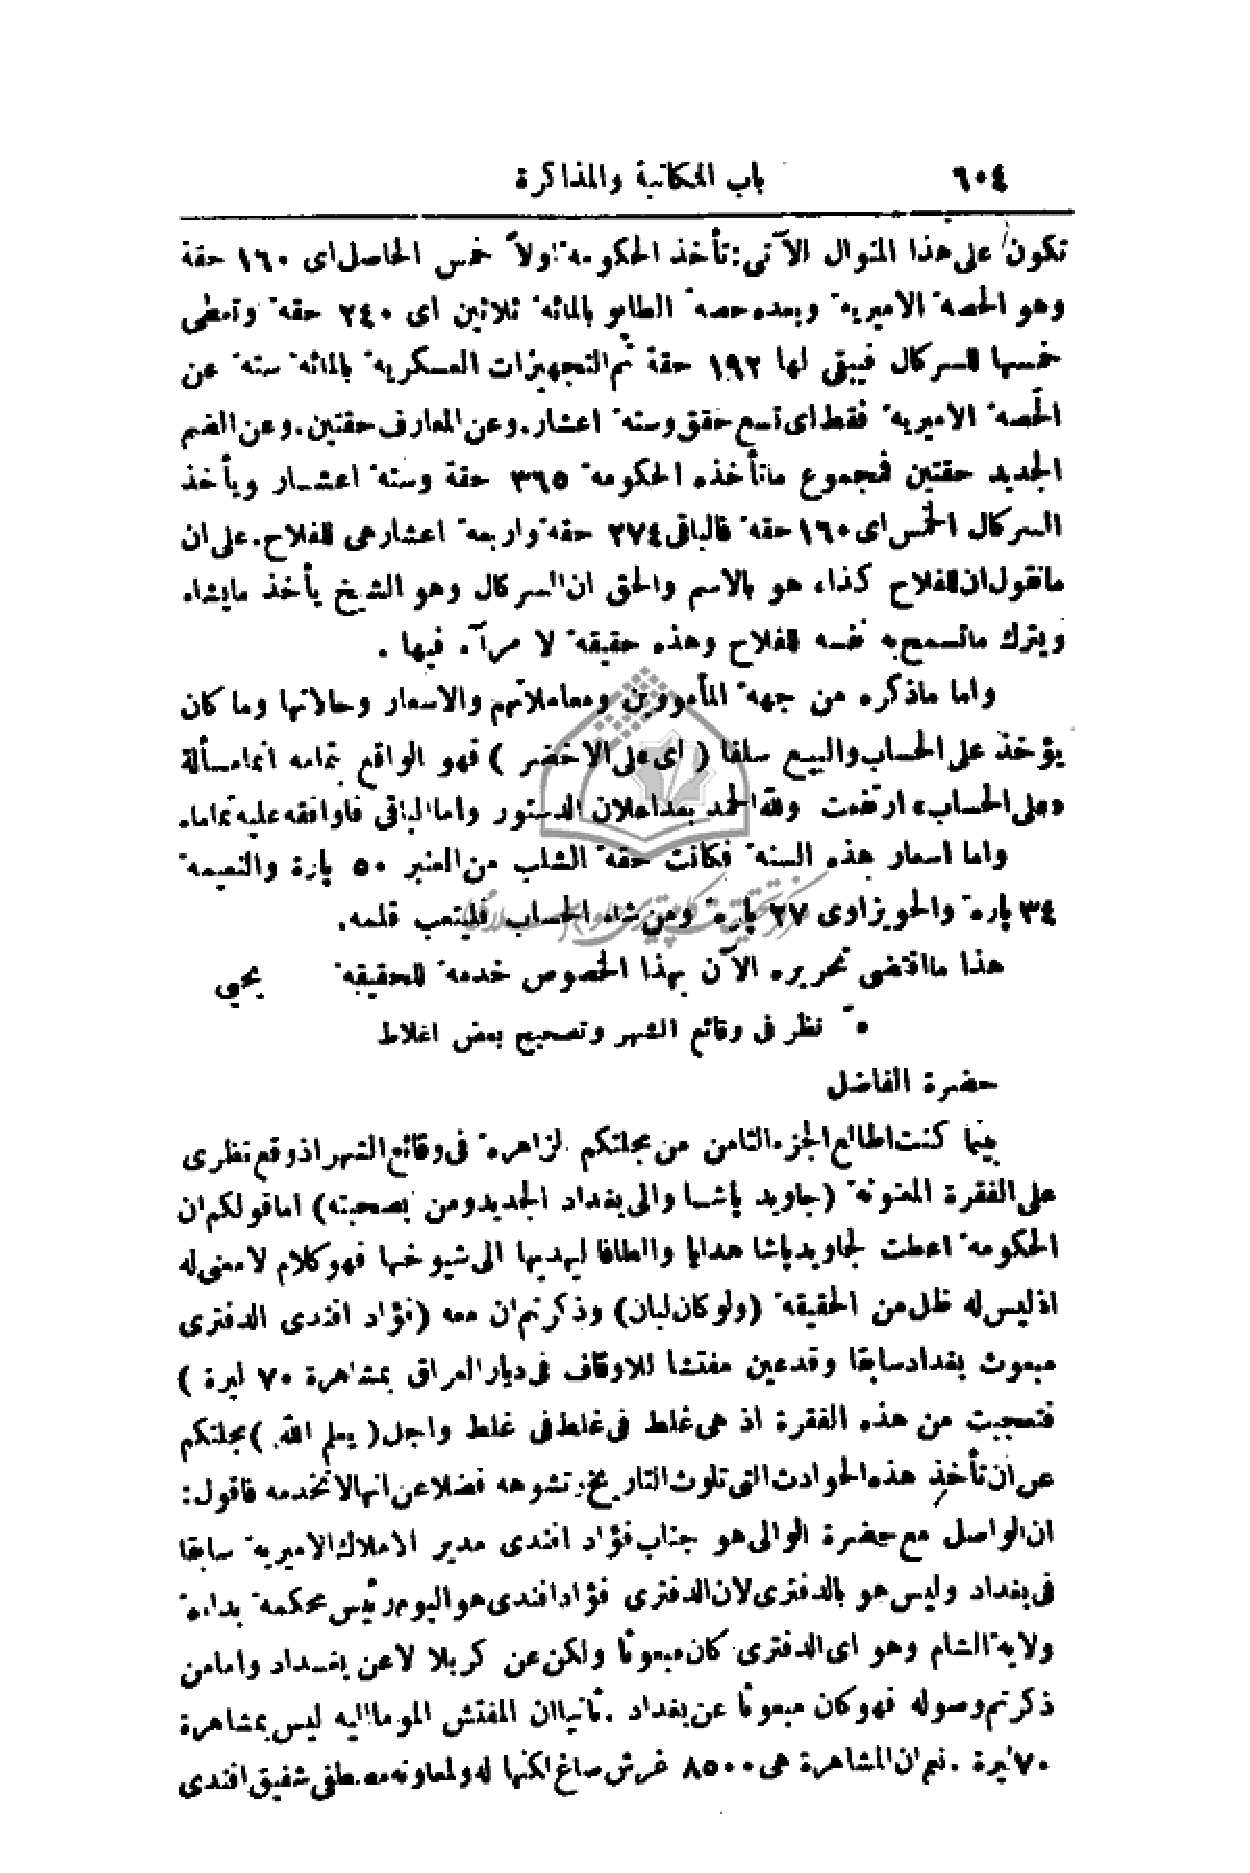 ٦٠٤ باب المكاتبة والمذاكرة
تكون على هذا المنوال الآتي: تأخذ الحكومة اولاً خمس الحاصل اى ١٦٠ حقة
وهو الحصة الاميرية وبعده حصة الطابو بالمائة ثلاثين اى ٢٤٠ حقة وتعطى
خمسها للسركال فيبقى لها ١٩٢ حقة ثم التجهيزات العسكرية بالمائة ستة عن
الحصة الاميرية فقط اى تسع حقق وستة اعشار. وعن المعارف حقتين. وعن الضم
الجديد حقتين فمجموع ماتأخذه الحكومة ٣٦٥ حقة وستة اعشـار ويأخذ
السركال الخمس اى ١٦٠ حقة فالباقى ٢٧٤ حقة واربعة اعشار هى للفلاح. على ان
مانقول ان للفلاح كذا، هو بالاسم والحق ان السركال وهو الشيخ يأخذ مايشاء
ويترك ماتسمح به نفسه للفلاح وهذه حقيقة لا مرآء فيها .
واما ماذكره من جهة المأمورين ومعاملاتهم والاسعار وحالاتها وما كان
يؤخذ على الحساب والبيع سلفا ( اى على الاخضر ) فهو الواقع بتمامه انما مسألة
«على الحساب» ارتفعت ولله الحمد بعد اعلان الدستور واما الباقى فاوافقه عليه تماما.
واما اسعار هذه السنة فكانت حقة الشلب من العنبر ٥٠ پارة والنعيمة
٣٤ پارة والحويزاوى ٢٧ پارة ومن شاء الحساب فليتعب قلمه.
هذا مااقتضى تحريره الآن بهذا الخصوص خدمة للحقيقة يحيى
٥ً نظر فى وقائع الشهر وتصحيح بعض اغلاط
حضرة الفاضل
بينما كنت اطالع الجزء الثامن من مجلتكم الزاهرة فى وقائع الشهر اذ وقع نظرى
على الفقرة المعنونة (جاويد پاشـا والى بغداد الجديد ومن بصحبته) اما قولكم ان
الحكومة اعطت لجاويد پاشا هدايا والطافا ليهديها الى شيوخها فهو كلام لا معنى له
اذ ليس له ظل من الحقيقة (ولو كان لبان) وذكرتم ان معه (فؤاد افندى الدفترى
مبعوث بغداد سابقا وقد عين مفتشا للاوقاف فى ديار العراق بمشاهرة ٧٠ ليرة )
فتعجبت من هذه الفقرة اذ هى غلط فى غلط فى غلط واجل ( يعلم الله ) مجلتكم
عن ان تأخذ هذه الحوادث التى تلوث التاريخ وتشوهه فضلا عن انها لا تخدمه فاقول:
ان الواصل مع حضرة الوالى هو جناب فؤاد افندى مدير الاملاك الاميرية سابقا
فى بغداد وليس هو بالدفترى لان الدفترى فؤاد افندى هو اليوم رئيس محكمة بداءة
ولاية الشام وهو اى الدفترى كان مبعوثا ولكن عن كربلا لا عن بغـداد واما من
ذكرتم وصوله فهو كان مبعوثا عن بغداد . ثانيا ان المفتش الموما اليه ليس بمشاهرة
٧٠ ليرة . نعم ان المشاهرة هى ٨٥٠٠ غرش صاغ لكنها له ولمعاونه مصطفى شفيق افندى